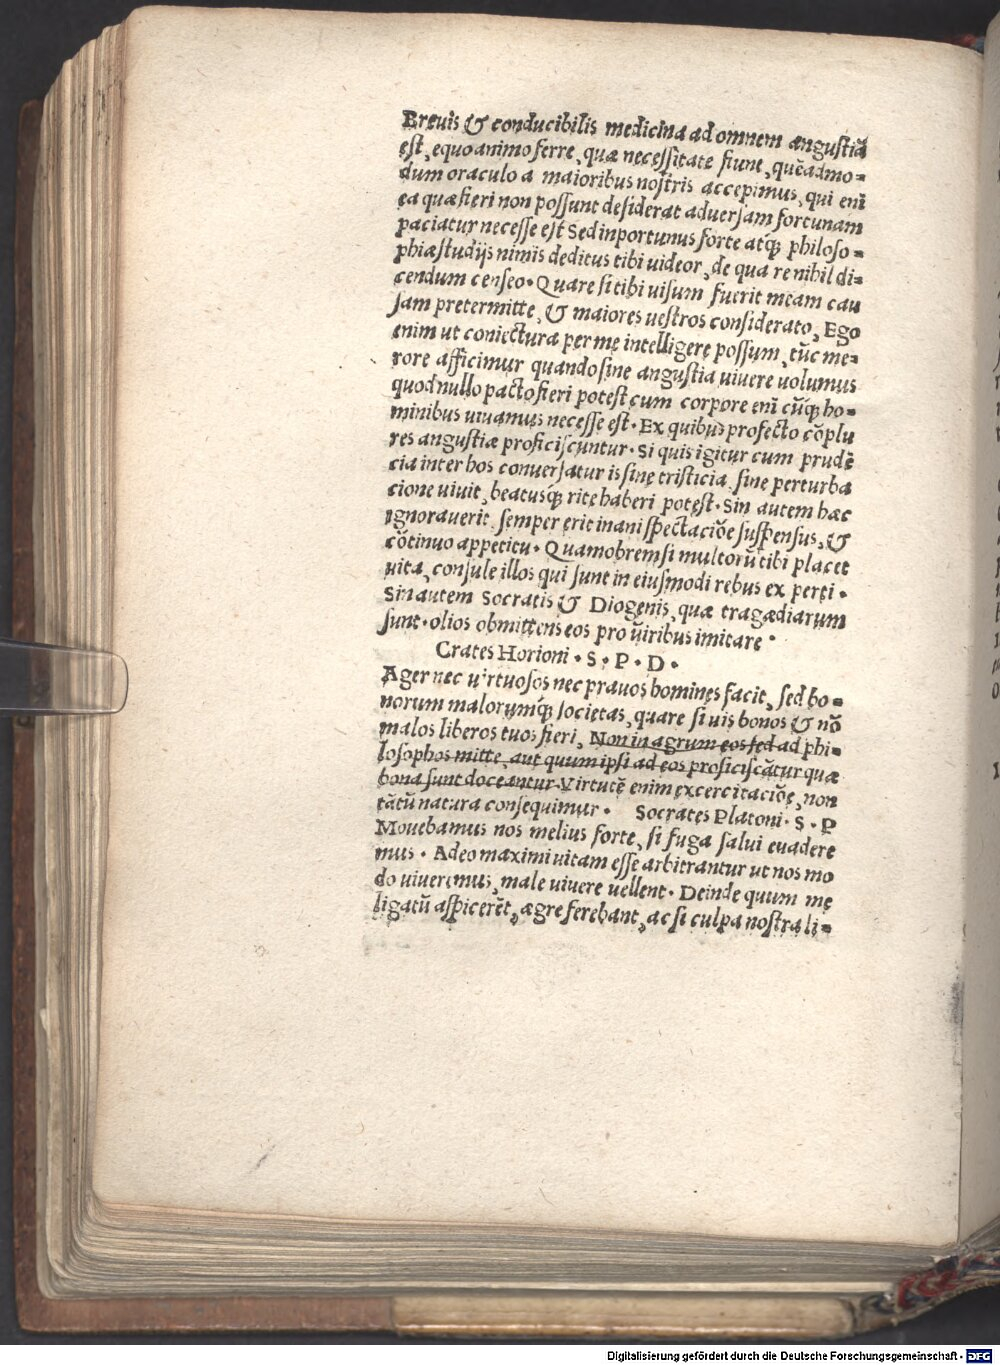 Breuis & conducibilis medicina ad omnem angustiã
est, equo animo ferre, quæ necessitate fiunt, quẽadmo=
dum oraculo a maioribus nostris accepimus, qui eni
ea quæ fieri non possunt desiderat aduersam fortunam
paciatur necesse est Sed inportunus forte atq; philoso=
phiæ studijs nimis deditus tibi uideor, de qua re nihil di=
cendum censeo. Quare si tibi uisum fuerit meam cau
sam pretermitte, & maiores uestros considerato, Ego
enim ut coniectura per me intelligere possum, tũc me=
rore afficimur quando sine angustia uiuere uolumus
quod nullo pacto fieri potest cum corpore enĩ cũq; ho=
minibus uiuamus necesse est. Ex quibus profecto cõplu
res angustiæ proficiscuntur. Si quis igitur cum prudẽ
cia inter hos conuersatur is sine tristicia, sine perturba
cione uiuit, beatusq; rite haberi potest. Sin autem hæc
ignorauerit, semper erit inani spectaciõe suspensus, &
cõtinuo appetitu. Quamobrem si multorũ tibi placet
uita, consule illos qui sunt in eiusmodi rebus ex perti.
Sin autem Socratis & Diogenis, quæ tragædiarum
sunt. olios obmittens eos pro uiribus imitare.
Crates Horioni. S. P. D.
Ager nec uirtuosos nec prauos homines facit, sed bo=
norum malorumq; societas, quare si uis bonos & nõ
malos liberos tuos fieri, Non in agrum eos sed ad phi=
losophos mitte, aut quum ipsi ad eos proficiscãtur quæ
bona sunt doceantur. Virtutẽ enim excercitaciõe, non
tãtũ natura consequimur. Socrates Platoni. S. P
Mouebamus nos melius forte, si fuga salui euadere
mus. Adeo maximi uitam esse arbitrantur ut nos mo
do uiueremus, male uiuere uellent. Deinde quum me
ligatũ aspicerẽt, ægre ferebant, ac si culpa nostra li=
Digitalisierung gefördert durch die Deutsche Forschungsgemeinschaft - DFG